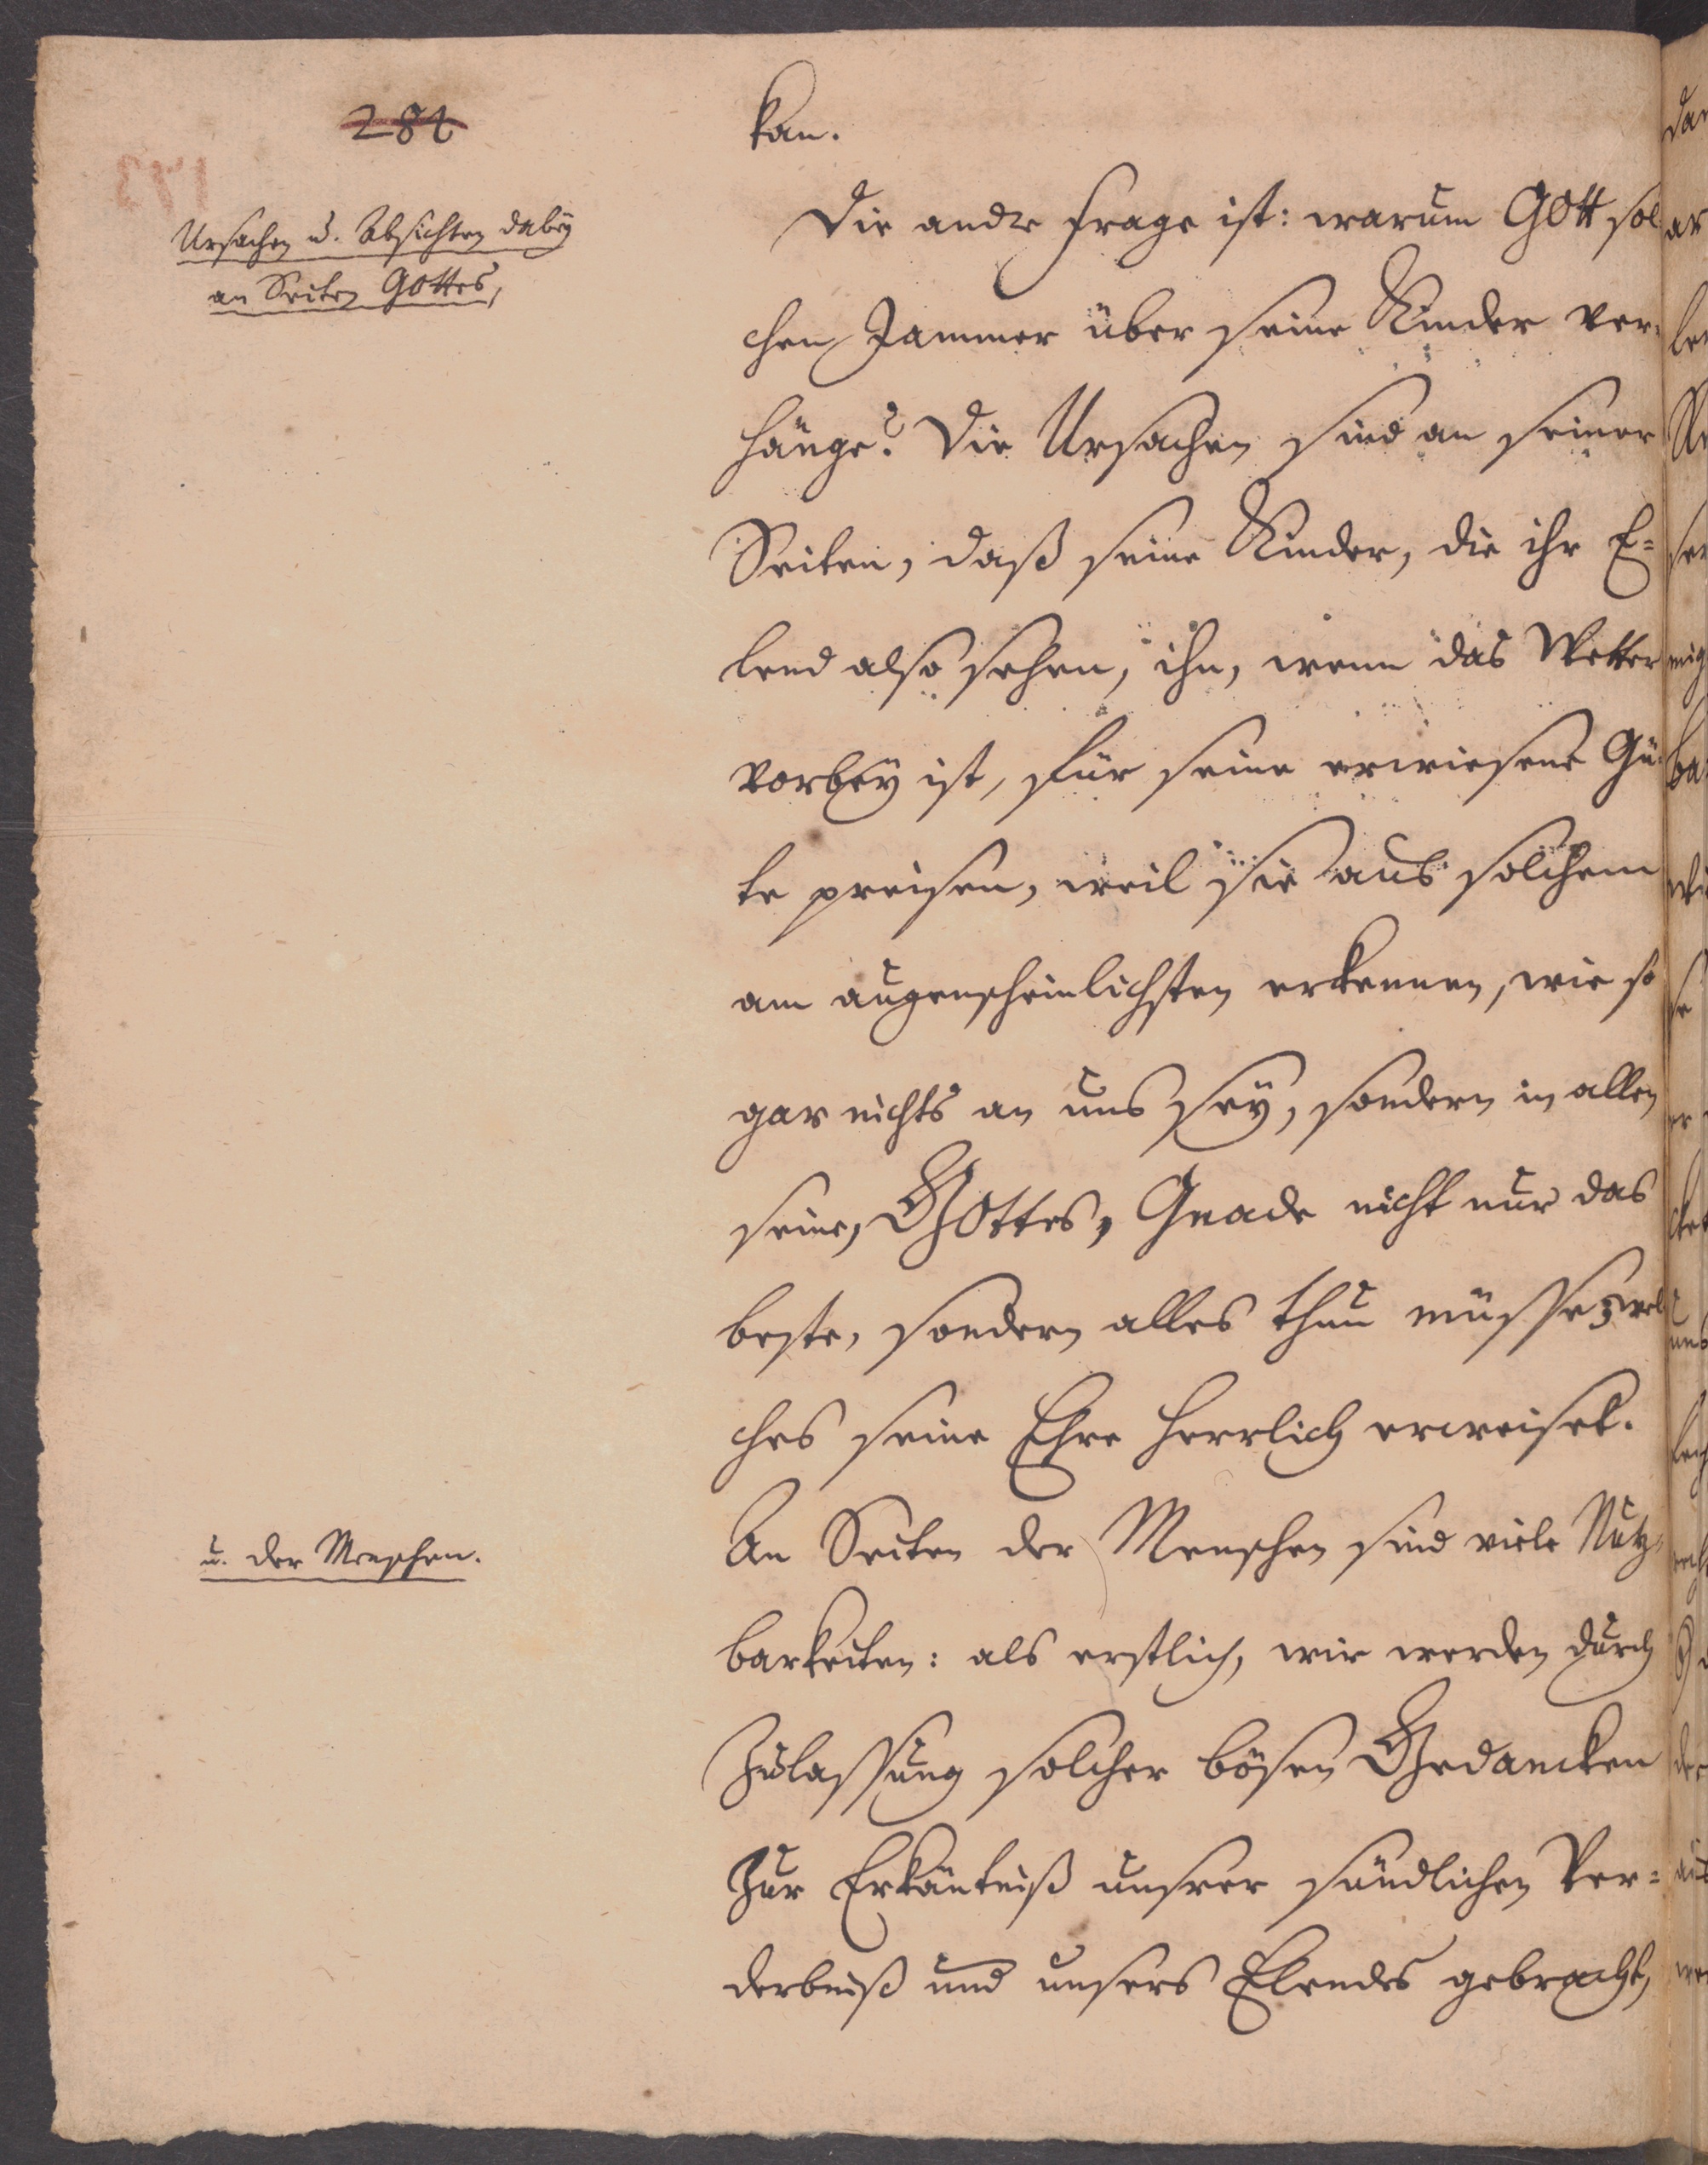 282
Ursachen u. Absichten dabey
an Seiten Gottes,
kan.
Die andre Frage ist: warum GOtt sol
chen Jammer über seine Kinder ver-
hänge? Die Ursachen sind an seiner
Seiten, daß seine Kinder, die ihr E-
lend also sehen, ihn, wenn das Wetter
vorbey ist, für seine erwiesene Gü-
te preisen, weil sie aus solchem
am augenscheinlichsten erkennen, wie so
gar nichts an uns sey, sondern in allen
seine, GOttes, Gnade nicht nur das
beste, sondern alles thun müsse, wel
ches seine Ehre herrlich erweiset.
u. der Menschen.
An Seiten der Menschen sind viele Nutz-
barkeiten: als erstlich, wir werden durch
Zulassung solcher bösen Gedancken
zur Erkäntniß unsrer sündlichen Ver-
derbniß und unsers Elendes gebracht,